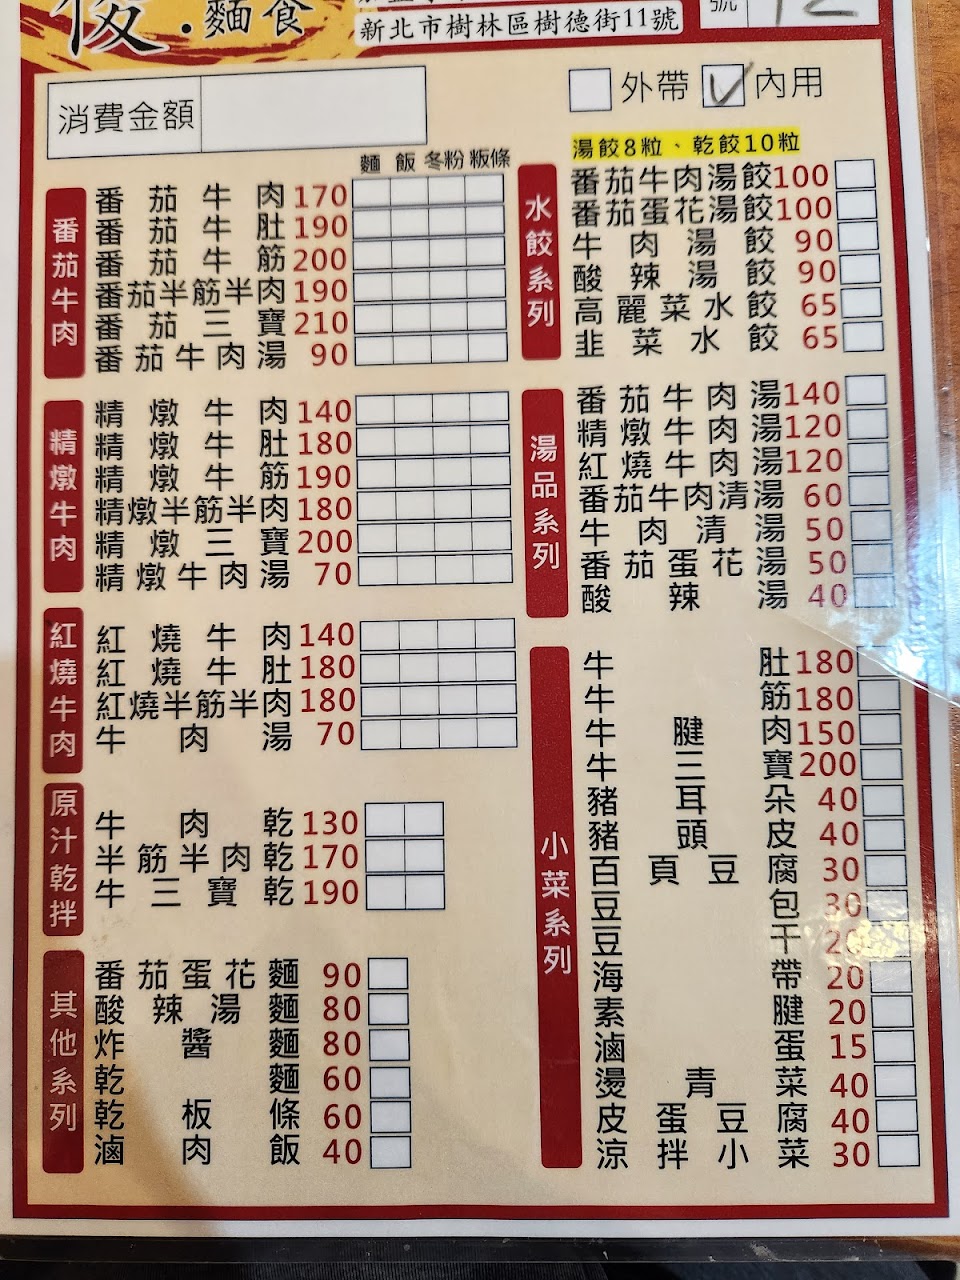 俊・麵食
新北市樹林區樹德街11號
號 12
消費金額
外帶 內用
湯餃8粒、乾餃10粒
麵 飯 冬粉 粄條
番茄牛肉
番茄牛肉 170
番茄牛肚 190
番茄牛筋 200
番茄半筋半肉 190
番茄三寶 210
番茄牛肉湯 90
精燉牛肉
精燉牛肉 140
精燉牛肚 180
精燉牛筋 190
精燉半筋半肉 180
精燉三寶 200
精燉牛肉湯 70
紅燒牛肉
紅燒牛肉 140
紅燒牛肚 180
紅燒半筋半肉 180
牛肉湯 70
原汁乾拌
牛肉乾 130
半筋半肉乾 170
牛三寶乾 190
其他系列
番茄蛋花麵 90
酸辣湯麵 80
炸醬麵 80
乾麵 60
乾板條 60
滷肉飯 40
水餃系列
番茄牛肉湯餃 100
番茄蛋花湯餃 100
牛肉湯餃 90
酸辣湯餃 90
高麗菜水餃 65
韭菜水餃 65
湯品系列
番茄牛肉湯 140
精燉牛肉湯 120
紅燒牛肉湯 120
番茄牛肉清湯 60
牛肉清湯 50
番茄蛋花湯 50
酸辣湯 40
小菜系列
牛肚 180
牛筋 180
牛腱肉 150
牛三寶 200
豬耳朵 40
豬頭皮 40
百頁豆腐 30
豆包 30
豆干 20
海帶 20
素腱 20
滷蛋 15
燙青菜 40
皮蛋豆腐 40
涼拌小菜 30